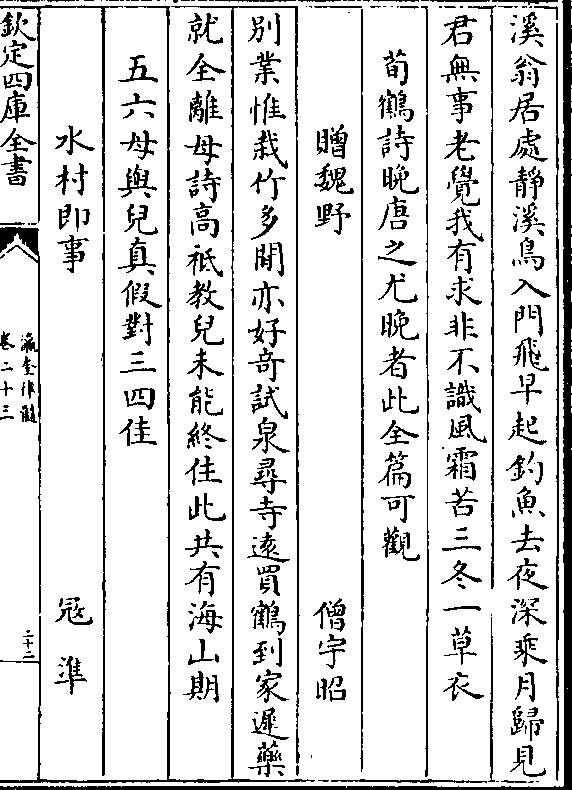 溪翁居處静溪鳥入門飛早起釣魚去夜深乘月歸見
君無事老覺我有求非不識風霜苦三冬一草衣
荀鶴詩晚唐之尤晚者此全篇可觀
贈魏野 僧宇昭
別業惟栽竹多閒亦好竒試泉尋寺遠買鶴到家遲藥
就全離母詩高祇教兒未能終住此共有海山期
五六母與兒真假對三四佳
水村即事 冦準
欽定四庫全書
瀛奎律髓
卷二十三
二十二